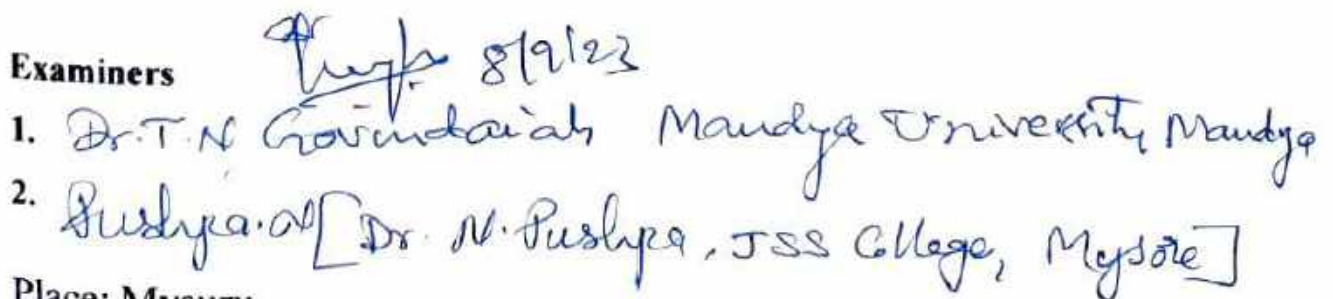 Examiners 8/9/23
1. Dr. T. N Govindaiah Mandya University, Mandya
2. Pushpa.N [Dr. N. Pushpa, JSS College, Mysore]
Place: Mysuru